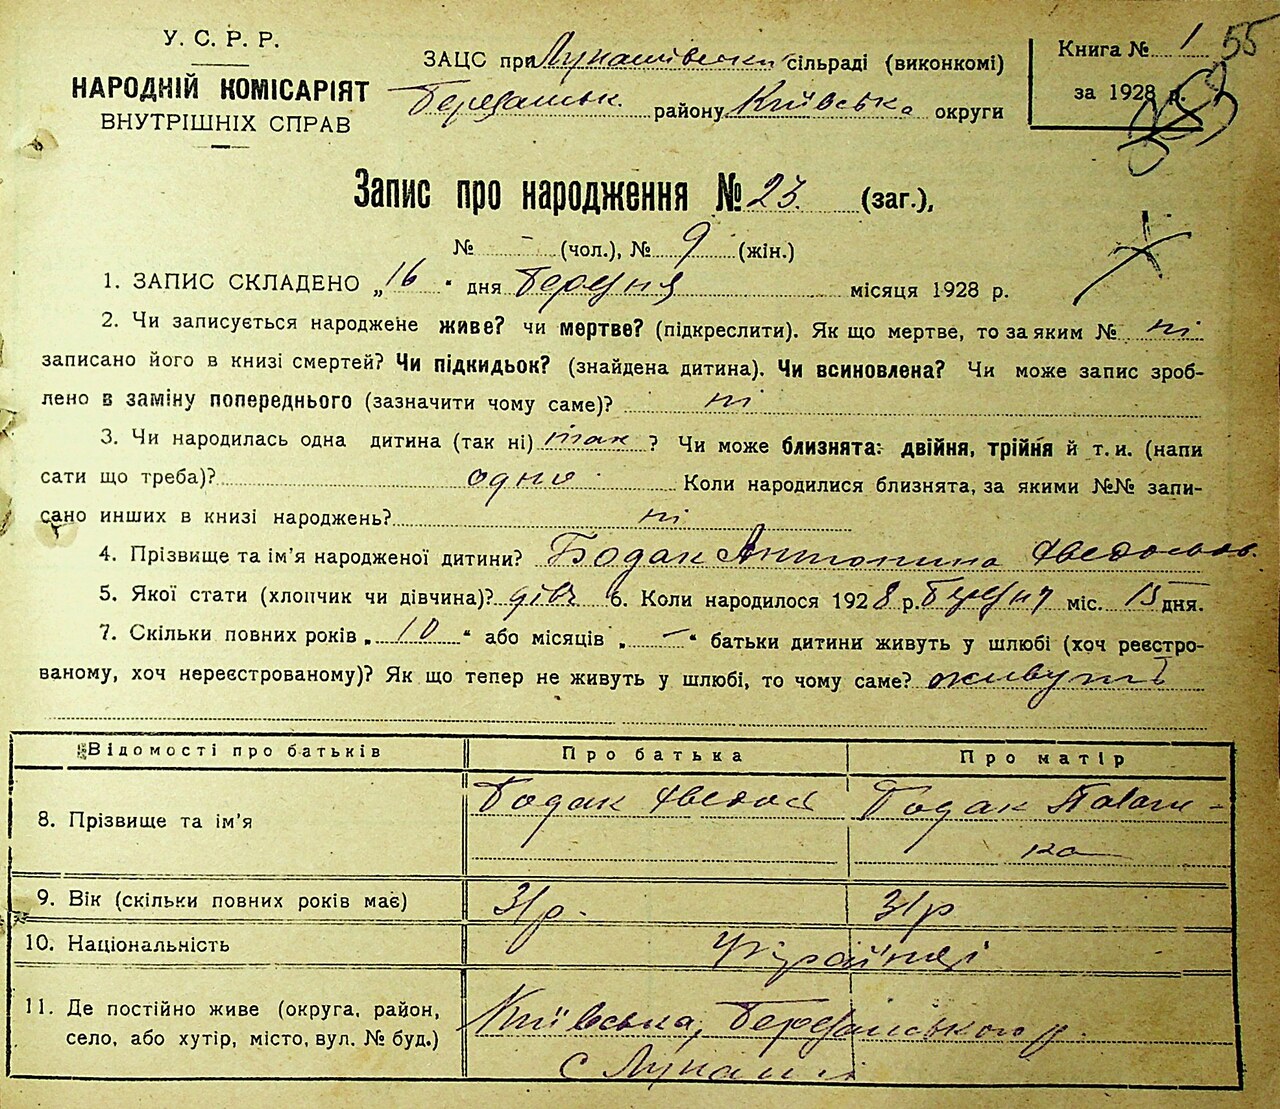 У. С. Р. Р.
НАРОДНІЙ КОМІСАРІЯТ
ВНУТРІШНІХ СПРАВ
ЗАЦС при Лукашівськи сільраді (виконкомі)
Березанськ. району Київська округи
Книга № 1 55
за 1928 р.
Запис про народження № 23. (заг.),
№ - (чол.), № 9 (жін.)
1. ЗАПИС СКЛАДЕНО „16“ дня Березня місяця 1928 р.
2. Чи записується народжене живе? чи мертве? (підкреслити). Як що мертве, то за яким № ні
записано його в книзі смертей? Чи підкидьок? (знайдена дитина). Чи всиновлена? Чи може запис зроб-
лено в заміну попереднього (зазначити чому саме)? ні
3. Чи народилась одна дитина (так ні) так ? Чи може близнята: двійня, трійня й т. и. (напи
сати що треба)? одно Коли народилися близнята, за якими №№ запи-
сано инших в книзі народжень? ні
4. Прізвище та ім'я народженої дитини? Бодак Антонина
5. Якої стати (хлопчик чи дівчина)? дівч 6. Коли народилося 1928 р. березня міс. 15 дня.
7. Скільки повних років „10“ або місяців „-“ батьки дитини живуть у шлюбі (хоч реєстро-
ваному, хоч нереєстрованому)? Як що тепер не живуть у шлюбі, то чому саме? живуть
Відомості про батьків Про батька Про матір
8. Прізвище та ім'я Бодак Федось Бодак Палаж-
ка
9. Вік (скільки повних років має) 31р. 31р
10. Національність Українці
11. Де постійно живе (округа, район, Київська, Березанського р.
село, або хутір, місто, вул. № буд.) с Лукаші